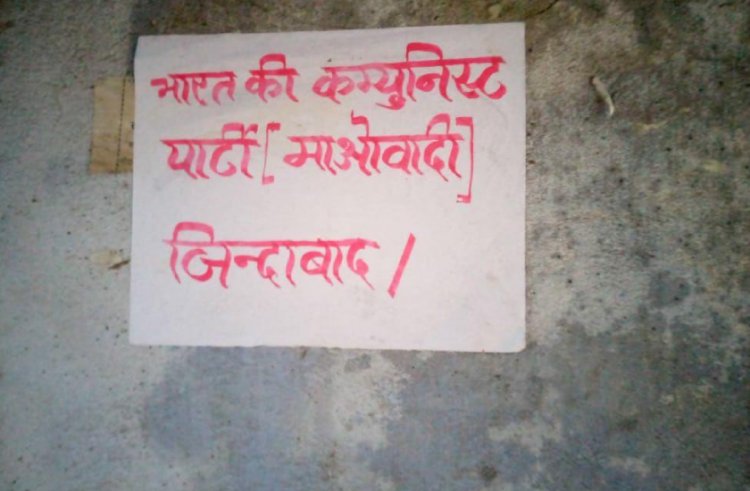 भारत की कम्युनिस्ट
पार्टी [माओवादी]
जिन्दाबाद /